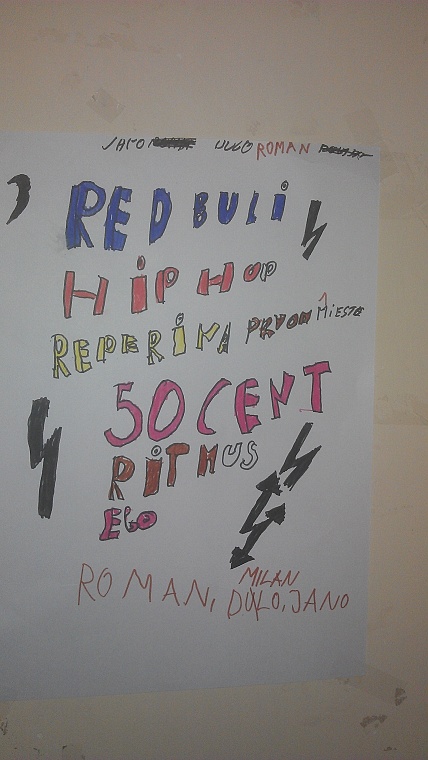 JARO HUGO ROMAN
RED BULi
HiP HOP
REPERiNA PRVOM MiESTE
50 CENT
RiTMUS
EGO
ROMAN, MILAN
DUŁO, JANO